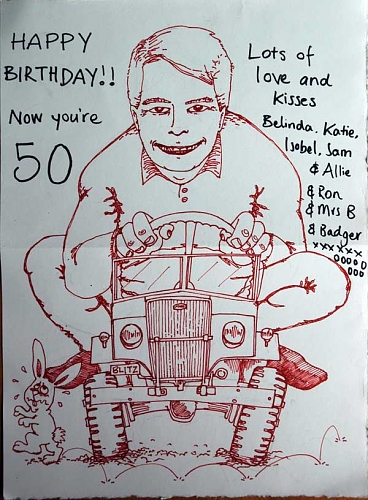 HAPPY
BIRTHDAY!!
Now you're
50
Lots of
love and
kisses
Belinda, Katie,
Isobel, Sam
& Allie
& Ron
& Mrs B
& Badger
xxxxxxx
ooooo
ooo
BLITZ